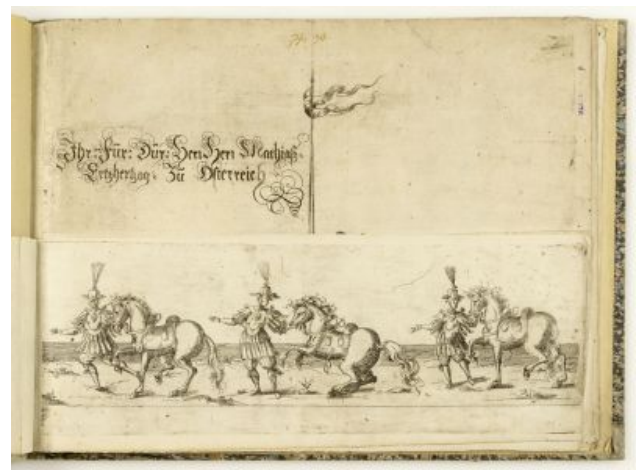 Ihr: Für: Dür: Herr Herr Mathias
Ertzhertzog Zu Osterreich